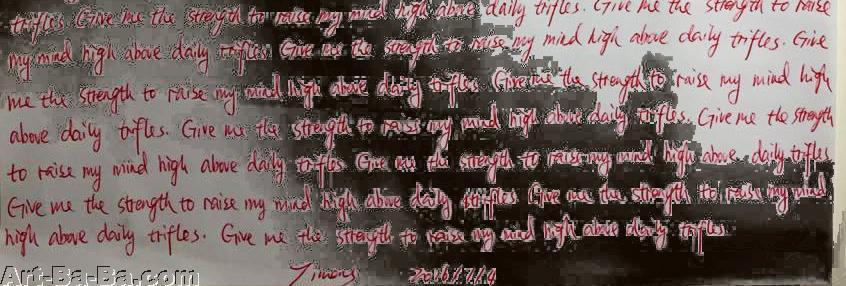 trifles. Give me the strength to raise my mind high above daily trifles. Give me the strength to raise
my mind high above daily trifles. Give me the strength to raise my mind high above daily trifles. Give
me the strength to raise my mind high above daily trifles. Give me the strength to raise my mind high
above daily trifles. Give me the strength to raise my mind high above daily trifles. Give me the strength
to raise my mind high above daily trifles. Give me the strength to raise my mind high above daily trifles.
Give me the strength to raise my mind high above daily trifles. Give me the strength to raise my mind
high above daily trifles. Give me the strength to raise my mind high above daily trifles.
Art-Ba-Ba.com